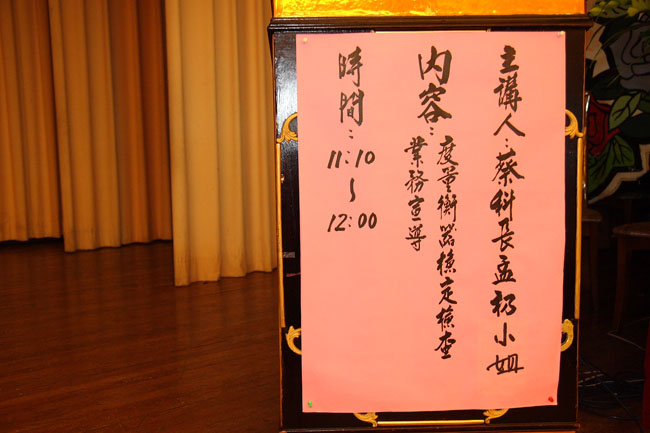 主講人：蔡科長孟初小姐
內容：度量衡器檢定檢查
業務宣導
時間：
11:10
~
12:00